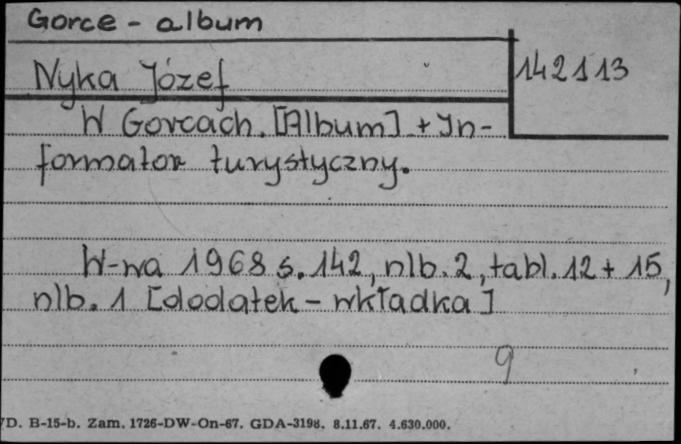 Gorce - album
Nyka Józef
142113
W Gorcach. [Album] + In-
formator turystyczny.
W-wa 1968 s. 142, nlb. 2, tabl. 12 + 15,
nlb. 1 [dodatek - wkładka]
9
D. B-15-b. Zam. 1726-DW-On-67. GDA-3198. 8.11.67. 4.630.000.